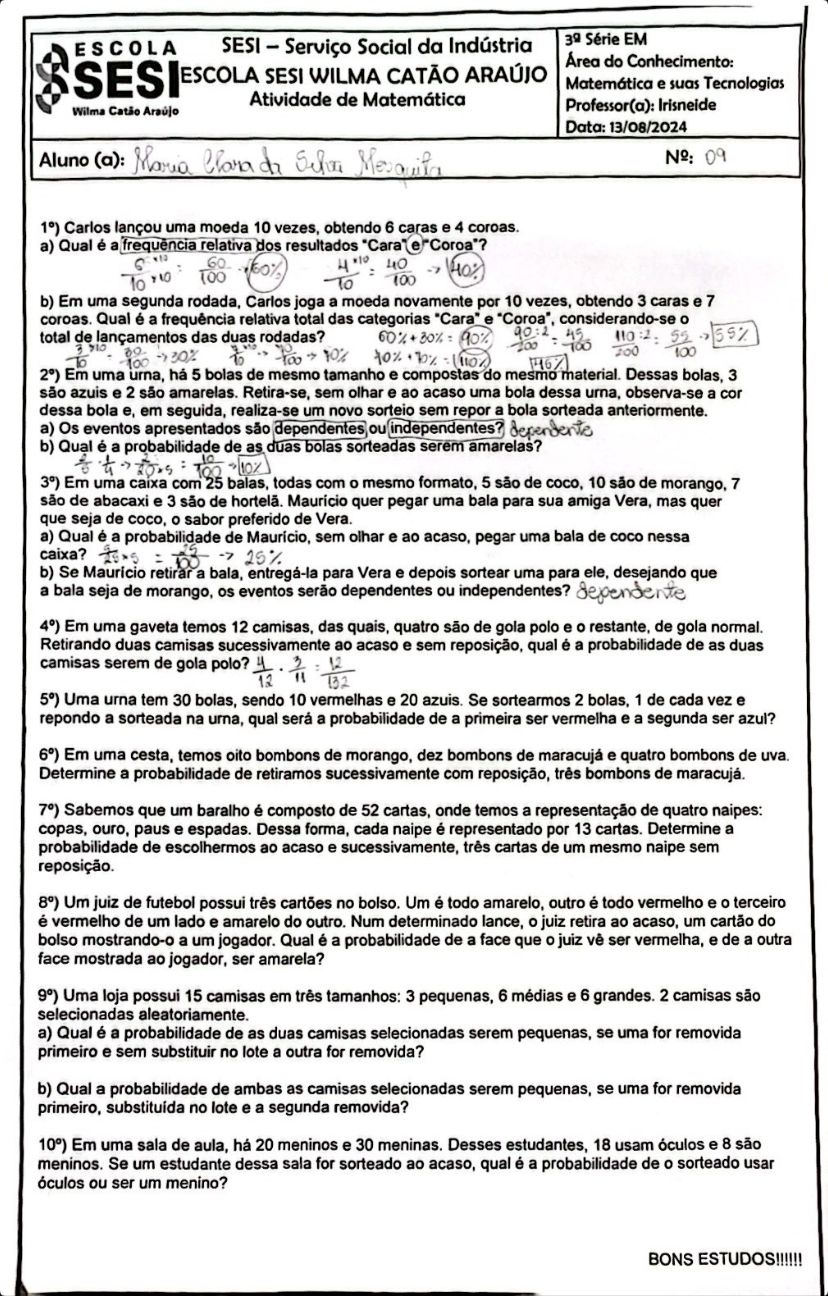 ESCOLA
SESI
Wilma Catão Araújo
SESI – Serviço Social da Indústria
ESCOLA SESI WILMA CATÃO ARAÚJO
Atividade de Matemática
3ª Série EM
Área do Conhecimento:
Matemática e suas Tecnologias
Professor(a): Irisneide
Data: 13/08/2024
Aluno (a): Maria Clara da Silva Mesquita Nº: 09
1º) Carlos lançou uma moeda 10 vezes, obtendo 6 caras e 4 coroas.
a) Qual é a frequência relativa dos resultados "Cara" e "Coroa"?
6×10/10×10 = 60/100 → 60% 4×10/10 = 40/100 → 40%
b) Em uma segunda rodada, Carlos joga a moeda novamente por 10 vezes, obtendo 3 caras e 7
coroas. Qual é a frequência relativa total das categorias "Cara" e "Coroa", considerando-se o
total de lançamentos das duas rodadas? 60% + 30% = 90% 90:2/200 = 45/100 110:2/200 = 55/100 → 55%
3×10/10 = 30/100 → 30% 7×10/10 → 70/100 → 70% 40% + 70% = 110% 45%
2º) Em uma urna, há 5 bolas de mesmo tamanho e compostas do mesmo material. Dessas bolas, 3
são azuis e 2 são amarelas. Retira-se, sem olhar e ao acaso uma bola dessa urna, observa-se a cor
dessa bola e, em seguida, realiza-se um novo sorteio sem repor a bola sorteada anteriormente.
a) Os eventos apresentados são dependentes ou independentes? dependente
b) Qual é a probabilidade de as duas bolas sorteadas serem amarelas?
2/5 · 1/4 → 2/20×5 = 10/100 → 10%
3º) Em uma caixa com 25 balas, todas com o mesmo formato, 5 são de coco, 10 são de morango, 7
são de abacaxi e 3 são de hortelã. Maurício quer pegar uma bala para sua amiga Vera, mas quer
que seja de coco, o sabor preferido de Vera.
a) Qual é a probabilidade de Maurício, sem olhar e ao acaso, pegar uma bala de coco nessa
caixa? 5/25×5 = 25/100 → 25%
b) Se Maurício retirar a bala, entregá-la para Vera e depois sortear uma para ele, desejando que
a bala seja de morango, os eventos serão dependentes ou independentes? dependente
4º) Em uma gaveta temos 12 camisas, das quais, quatro são de gola polo e o restante, de gola normal.
Retirando duas camisas sucessivamente ao acaso e sem reposição, qual é a probabilidade de as duas
camisas serem de gola polo? 4/12 · 3/11 = 12/132
5º) Uma urna tem 30 bolas, sendo 10 vermelhas e 20 azuis. Se sortearmos 2 bolas, 1 de cada vez e
repondo a sorteada na urna, qual será a probabilidade de a primeira ser vermelha e a segunda ser azul?
6º) Em uma cesta, temos oito bombons de morango, dez bombons de maracujá e quatro bombons de uva.
Determine a probabilidade de retiramos sucessivamente com reposição, três bombons de maracujá.
7º) Sabemos que um baralho é composto de 52 cartas, onde temos a representação de quatro naipes:
copas, ouro, paus e espadas. Dessa forma, cada naipe é representado por 13 cartas. Determine a
probabilidade de escolhermos ao acaso e sucessivamente, três cartas de um mesmo naipe sem
reposição.
8º) Um juiz de futebol possui três cartões no bolso. Um é todo amarelo, outro é todo vermelho e o terceiro
é vermelho de um lado e amarelo do outro. Num determinado lance, o juiz retira ao acaso, um cartão do
bolso mostrando-o a um jogador. Qual é a probabilidade de a face que o juiz vê ser vermelha, e de a outra
face mostrada ao jogador, ser amarela?
9º) Uma loja possui 15 camisas em três tamanhos: 3 pequenas, 6 médias e 6 grandes. 2 camisas são
selecionadas aleatoriamente.
a) Qual é a probabilidade de as duas camisas selecionadas serem pequenas, se uma for removida
primeiro e sem substituir no lote a outra for removida?
b) Qual a probabilidade de ambas as camisas selecionadas serem pequenas, se uma for removida
primeiro, substituída no lote e a segunda removida?
10º) Em uma sala de aula, há 20 meninos e 30 meninas. Desses estudantes, 18 usam óculos e 8 são
meninos. Se um estudante dessa sala for sorteado ao acaso, qual é a probabilidade de o sorteado usar
óculos ou ser um menino?
BONS ESTUDOS!!!!!!